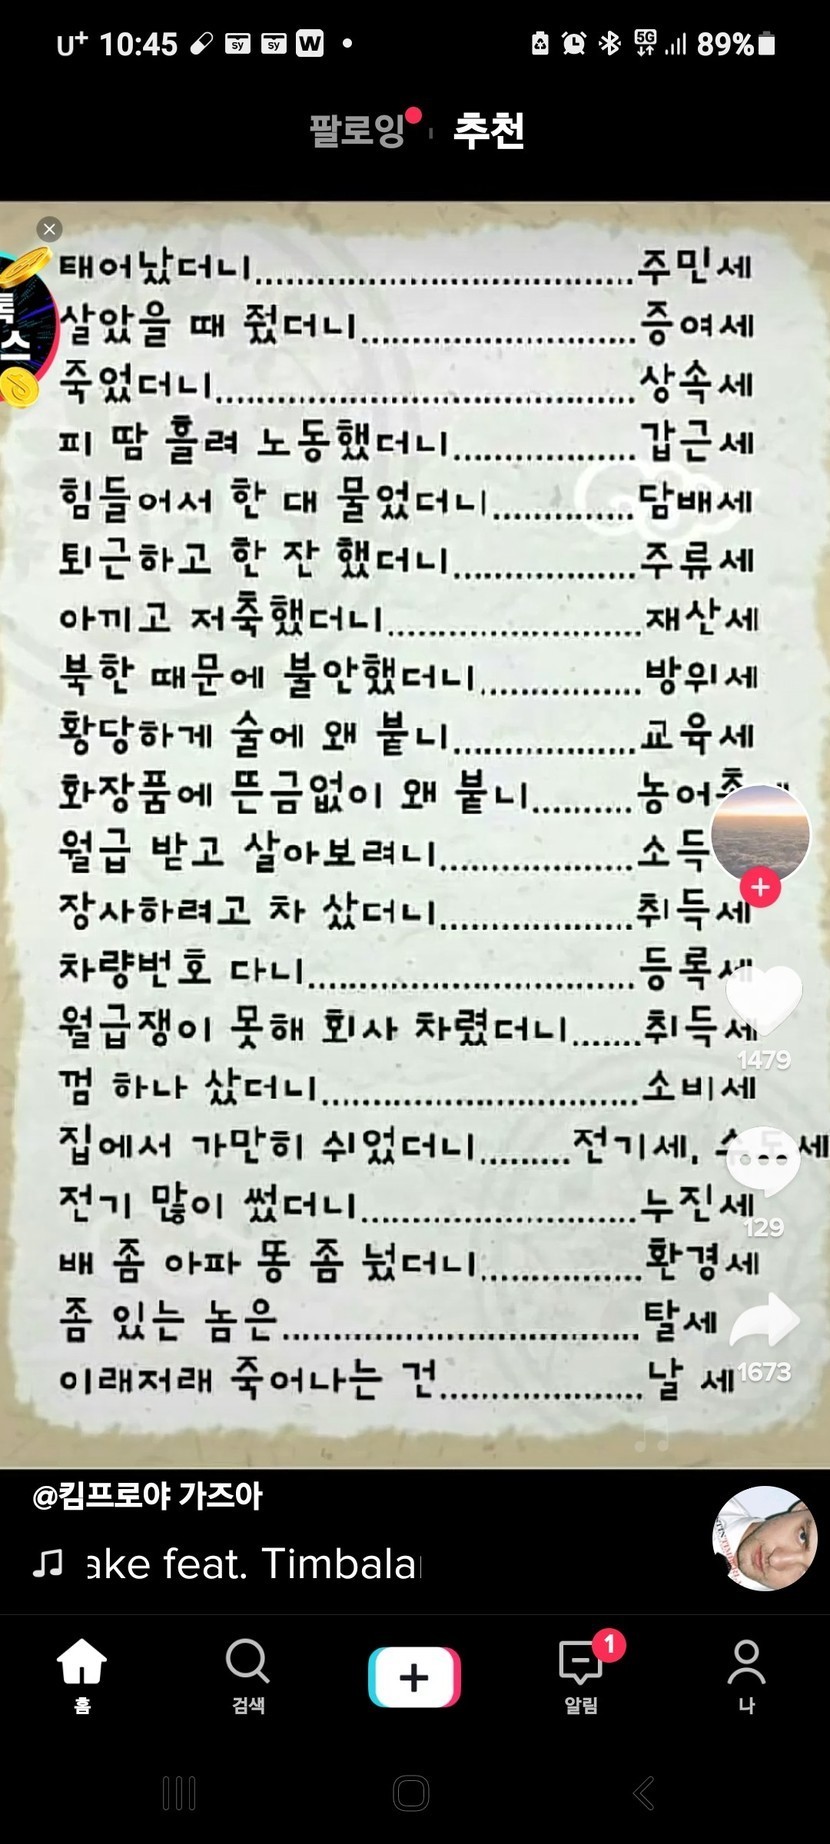 U+ 10:45 sy sy W 5G 89%
팔로잉 추천
태어났더니..............................주민세
살았을 때 줬더니......................증여세
죽었더니.................................상속세
피 땀 흘려 노동했더니..............갑근세
힘들어서 한 대 물었더니...........담배세
퇴근하고 한 잔 했더니..............주류세
아끼고 저축했더니....................재산세
북한 때문에 불안했더니............방위세
황당하게 술에 왜 붙니..............교육세
화장품에 뜬금없이 왜 붙니........농어촌
월급 받고 살아보려니...............소득
장사하려고 차 샀더니...............취득세
차량번호 다니..........................등록세
월급쟁이 못해 회사 차렸더니......취득세
껌 하나 샀더니.........................소비세
집에서 가만히 쉬었더니.........전기세, 수도세
전기 많이 썼더니......................누진세
배 좀 아파 똥 좀 눴더니............환경세
좀 있는 놈은............................탈세
이래저래 죽어나는 건................날 세
톡
스
1479
129
1673
@킴프로야 가즈아
ake feat. Timbala
홈 검색 알림 1 나